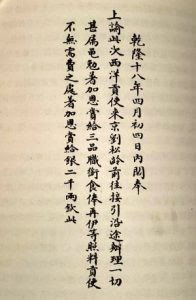 乾隆十八年四月初四日內閣奉
上諭此次西洋貢使來京劉松齡前往接引沿途辦理一切
甚屬黽勉著加恩賞給三品職銜食俸再伊等照料貢使
不無需費之處著加恩賞給銀二千兩欽此